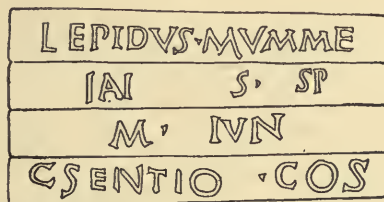 LEPIDVS·MVMME
IAI S· SP
M· IVN
CSENTIO ·COS